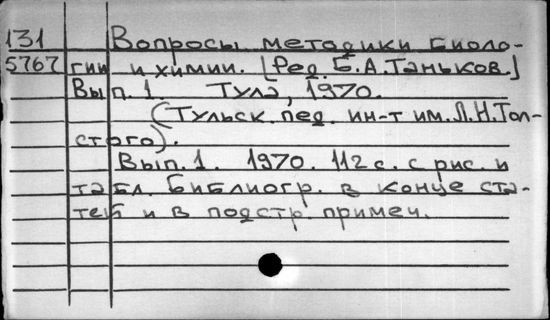 131 Вопросы методики биоло-
5767 гии и химии. [Ред. Б.А.Таньков.]
Вып. 1. Тула, 1970.
(Тульск. пед. ин-т им. Л.Н.Тол-
стого).
Вып. 1. 1970. 112 с. с рис. и
табл. Библиогр. в конце ста-
тей и в подстр. примеч.